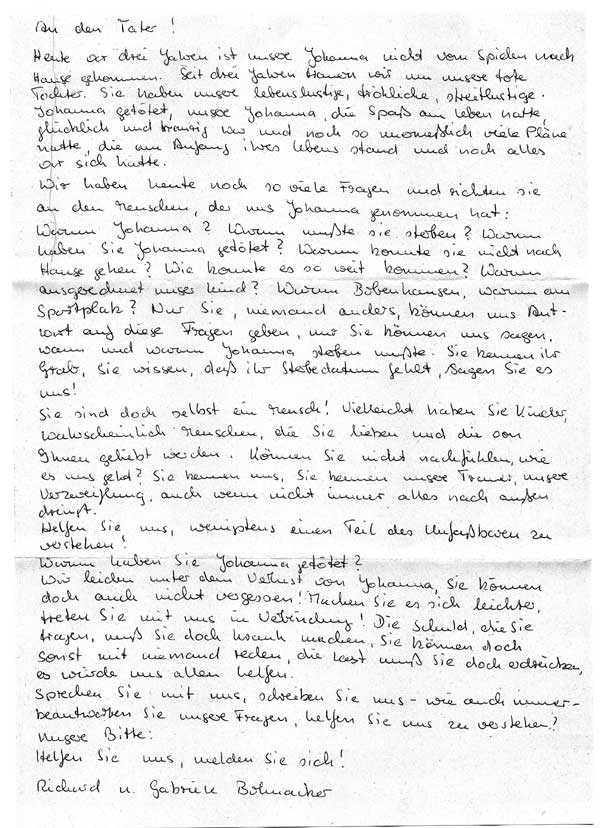 An den Täter!
Heute vor drei Jahren ist unsere Johanna nicht vom Spielen nach
Hause gekommen. Seit drei Jahren trauern wir um unsere tote
Tochter. Sie haben unsere lebenslustige, fröhliche, streitlustige
Johanna getötet, unsere Johanna, die Spaß am Leben hatte,
glücklich und traurig war und noch so unermeßlich viele Pläne
hatte, die am Anfang ihres Lebens stand und noch alles
vor sich hatte.
Wir haben heute noch so viele Fragen und richten sie
an den Menschen, der uns Johanna genommen hat:
Warum Johanna? Warum mußte sie sterben? Warum
haben Sie Johanna getötet? Warum konnte sie nicht nach
Hause gehen? Wie konnte es so weit kommen? Warum
ausgerechnet unser Kind? Warum Bobenhausen, warum am
Sportplatz? Nur Sie, niemand anders, können uns Ant-
wort auf diese Fragen geben, nur Sie können uns sagen,
wann und warum Johanna sterben mußte. Sie kennen ihr
Grab, Sie wissen, daß ihr Sterbedatum fehlt, sagen Sie es
uns!
Sie sind doch selbst ein Mensch! Vielleicht haben Sie Kinder,
wahrscheinlich Menschen, die Sie lieben und die von
Ihnen geliebt werden. Können Sie nicht nachfühlen, wie
es uns geht? Sie kennen uns, Sie kennen unsere Trauer, unsere
Verzweiflung, auch wenn nicht immer alles nach außen
dringt.
Helfen Sie uns, wenigstens einen Teil des Unfaßbaren zu
verstehen!
Warum haben Sie Johanna getötet?
Wir leiden unter dem Verlust von Johanna, Sie können
doch auch nicht vergessen! Machen Sie es sich leichter,
treten Sie mit uns in Verbindung! Die Schuld, die Sie
tragen, muß Sie doch krank machen, Sie können doch
sonst mit niemand reden, die Last muß Sie doch erdrücken,
es würde uns allen helfen.
Sprechen Sie mit uns, schreiben Sie uns - wie auch immer -
beantworten Sie unsere Fragen, helfen Sie uns zu verstehen!
Unsere Bitte:
Helfen Sie uns, melden Sie sich!
Richard u. Gabriele Bohnacker